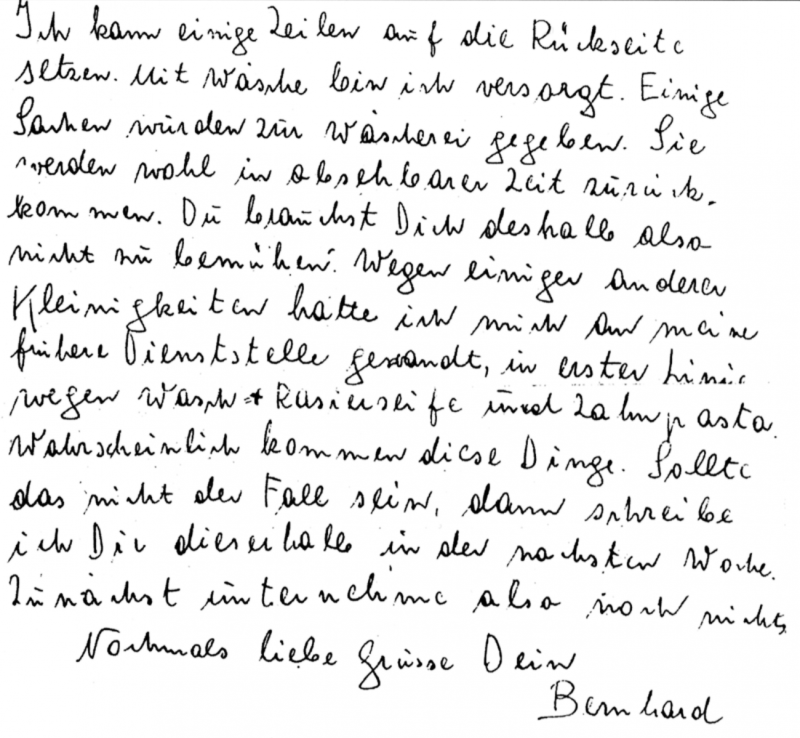 Ich kann einige Zeilen auf die Rückseite
setzen. Mit Wäsche bin ich versorgt. Einige
Sachen wurden zur Wäscherei gegeben. Sie
werden wohl in absehbarer Zeit zurück-
kommen. Du brauchst Dich deshalb also
nicht zu bemühen. Wegen einiger anderer
Kleinigkeiten hatte ich mich an meine
frühere Dienststelle gewandt, in erster Linie
wegen Wasch + Rasierseife und Zahnpasta.
Wahrscheinlich kommen diese Dinge. Sollte
das nicht der Fall sein, dann schreibe
ich Dir dieserhalb in der nächsten Woche.
Zunächst unternehme also noch nichts.
Nochmals liebe Grüsse Dein
Bernhard